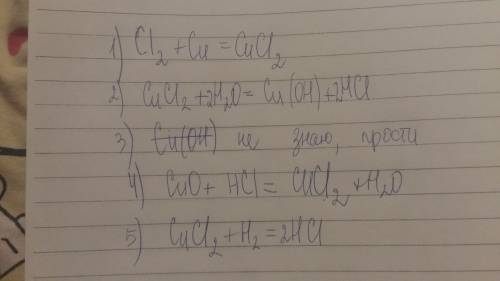 1) Cl₂ + Cu = CuCl₂
2) CuCl₂ + 2H₂O = Cu(OH) + 2HCl
3) Cu(OH) не знаю, прости
4) CuO + HCl = CuCl₂ + H₂O
5) CuCl₂ + H₂ = 2HCl